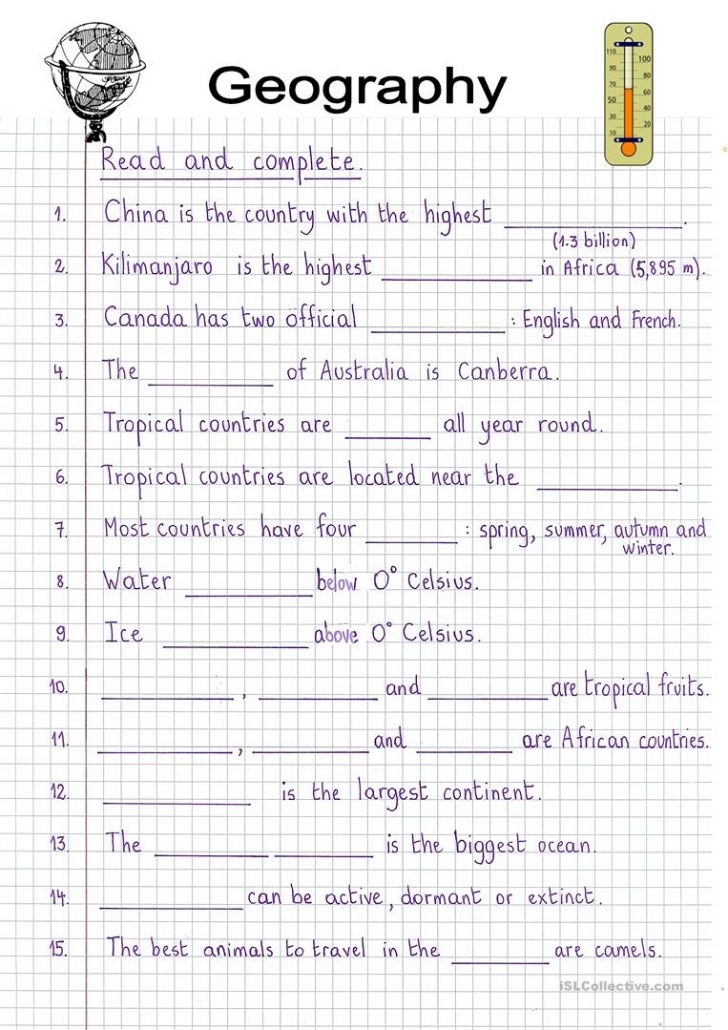 Geography
Read and complete.
1. China is the country with the highest ____________.
(1.3 billion)
2. Kilimanjaro is the highest ____________ in Africa (5,895 m).
3. Canada has two official ____________ : English and French.
4. The ____________ of Australia is Canberra.
5. Tropical countries are ________ all year round.
6. Tropical countries are located near the ____________.
7. Most countries have four ________ : spring, summer, autumn and
winter.
8. Water ____________ below 0° Celsius.
9. Ice ____________ above 0° Celsius.
10. ____________, ____________ and ____________ are tropical fruits.
11. ____________, ____________ and ________ are African countries.
12. ____________ is the largest continent.
13. The __________ __________ is the biggest ocean.
14. ____________ can be active, dormant or extinct.
15. The best animals to travel in the ________ are camels.
iSLCollective.com